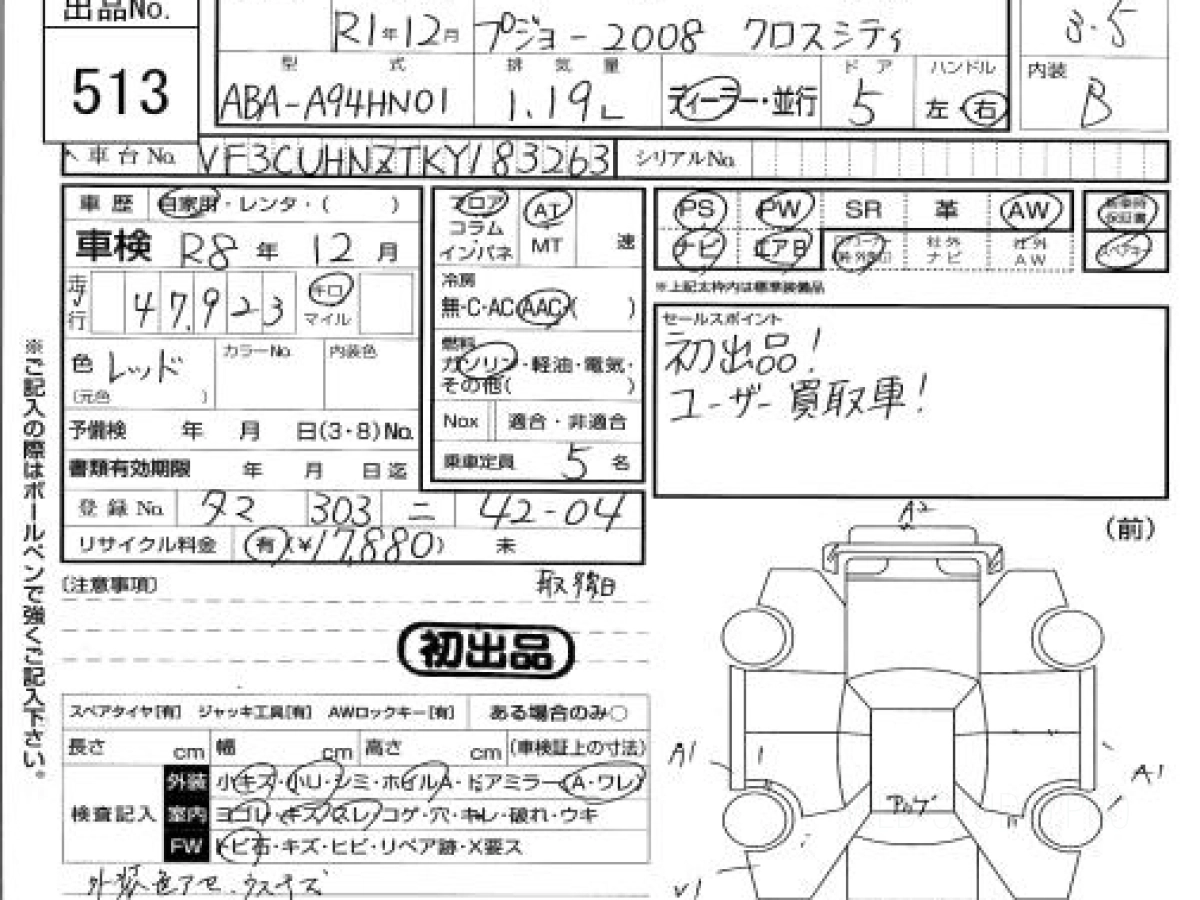 出品No.
513
R1年12月 プジョー2008 クロスシティ
3.5
型 式 排 気 量 ド ア ハンドル 内装
ABA-A94HN01 1.19L ディーラー・並行 5 左・右 B
車台No. VF3CUHNZTKY183263 シリアルNo.
車 歴 自家用・レンタ・( )
車検 R8年 12月
走行 47,923 キロ マイル
色 レッド カラーNo. 内装色
(元色 )
予備検 年 月 日(3・8)No.
書類有効期限 年 月 日迄
登録No. タマ 303 ニ 42-04
リサイクル料金 有(¥17,880) 未
フロア コラム インパネ
AT MT 速
冷房
無・C・AC・AAC・( )
燃料
ガソリン・軽油・電気・
その他( )
Nox 適合・非適合
乗車定員 5 名
PS PW SR 革 AW
ナビ エアB 社外ナビ 社外AW
スペアキー
※上記太枠内は標準装備品
セールスポイント
初出品!
ユーザー買取車!
※ご記入の際はボールペンで強くご記入下さい。
(注意事項)
初出品
スペアタイヤ[有] ジャッキ工具[有] AWロックキー[有] ある場合のみ○
長さ cm 幅 cm 高さ cm (車検証上の寸法)
検査記入
外装 小キズ・小U・シミ・ホイルA・ドアミラー(A・ワレ)
室内 ヨゴレ・キズ・スレ・コゲ・穴・キレ・破れ・ウキ
FW トビ石・キズ・ヒビ・リペア跡・X要ス
外装色アセ、ウスキズ
(前)
A2
A1
A1
V1